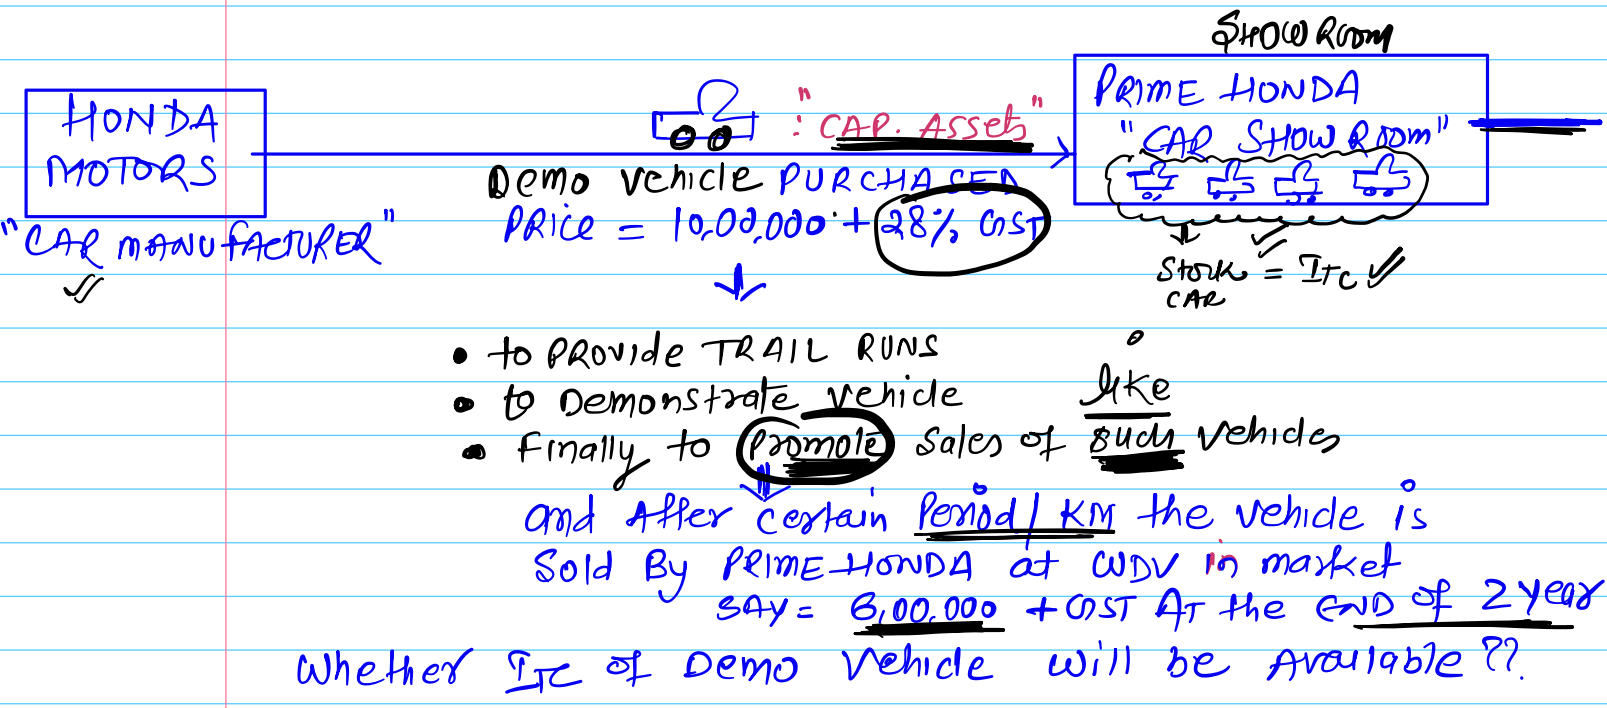 SHOW ROOM
HONDA MOTORS
"CAR MANUFACTURER"
: "CAP. Assets"
PRIME HONDA
"CAR SHOW ROOM"
Demo vehicle PURCHASED
PRICE = 10,00,000 + 28% GST
Stock CAR = ITC
• to PROVIDE TRAIL RUNS
• to Demonstrate vehicle
like
• Finally to Promote Sales of such vehicles
and After certain Period/KM the vehicle is
Sold By PRIME HONDA at WDV in market
SAY = 6,00,000 + GST AT the END of 2 year
Whether ITC of Demo Vehicle will be Available??